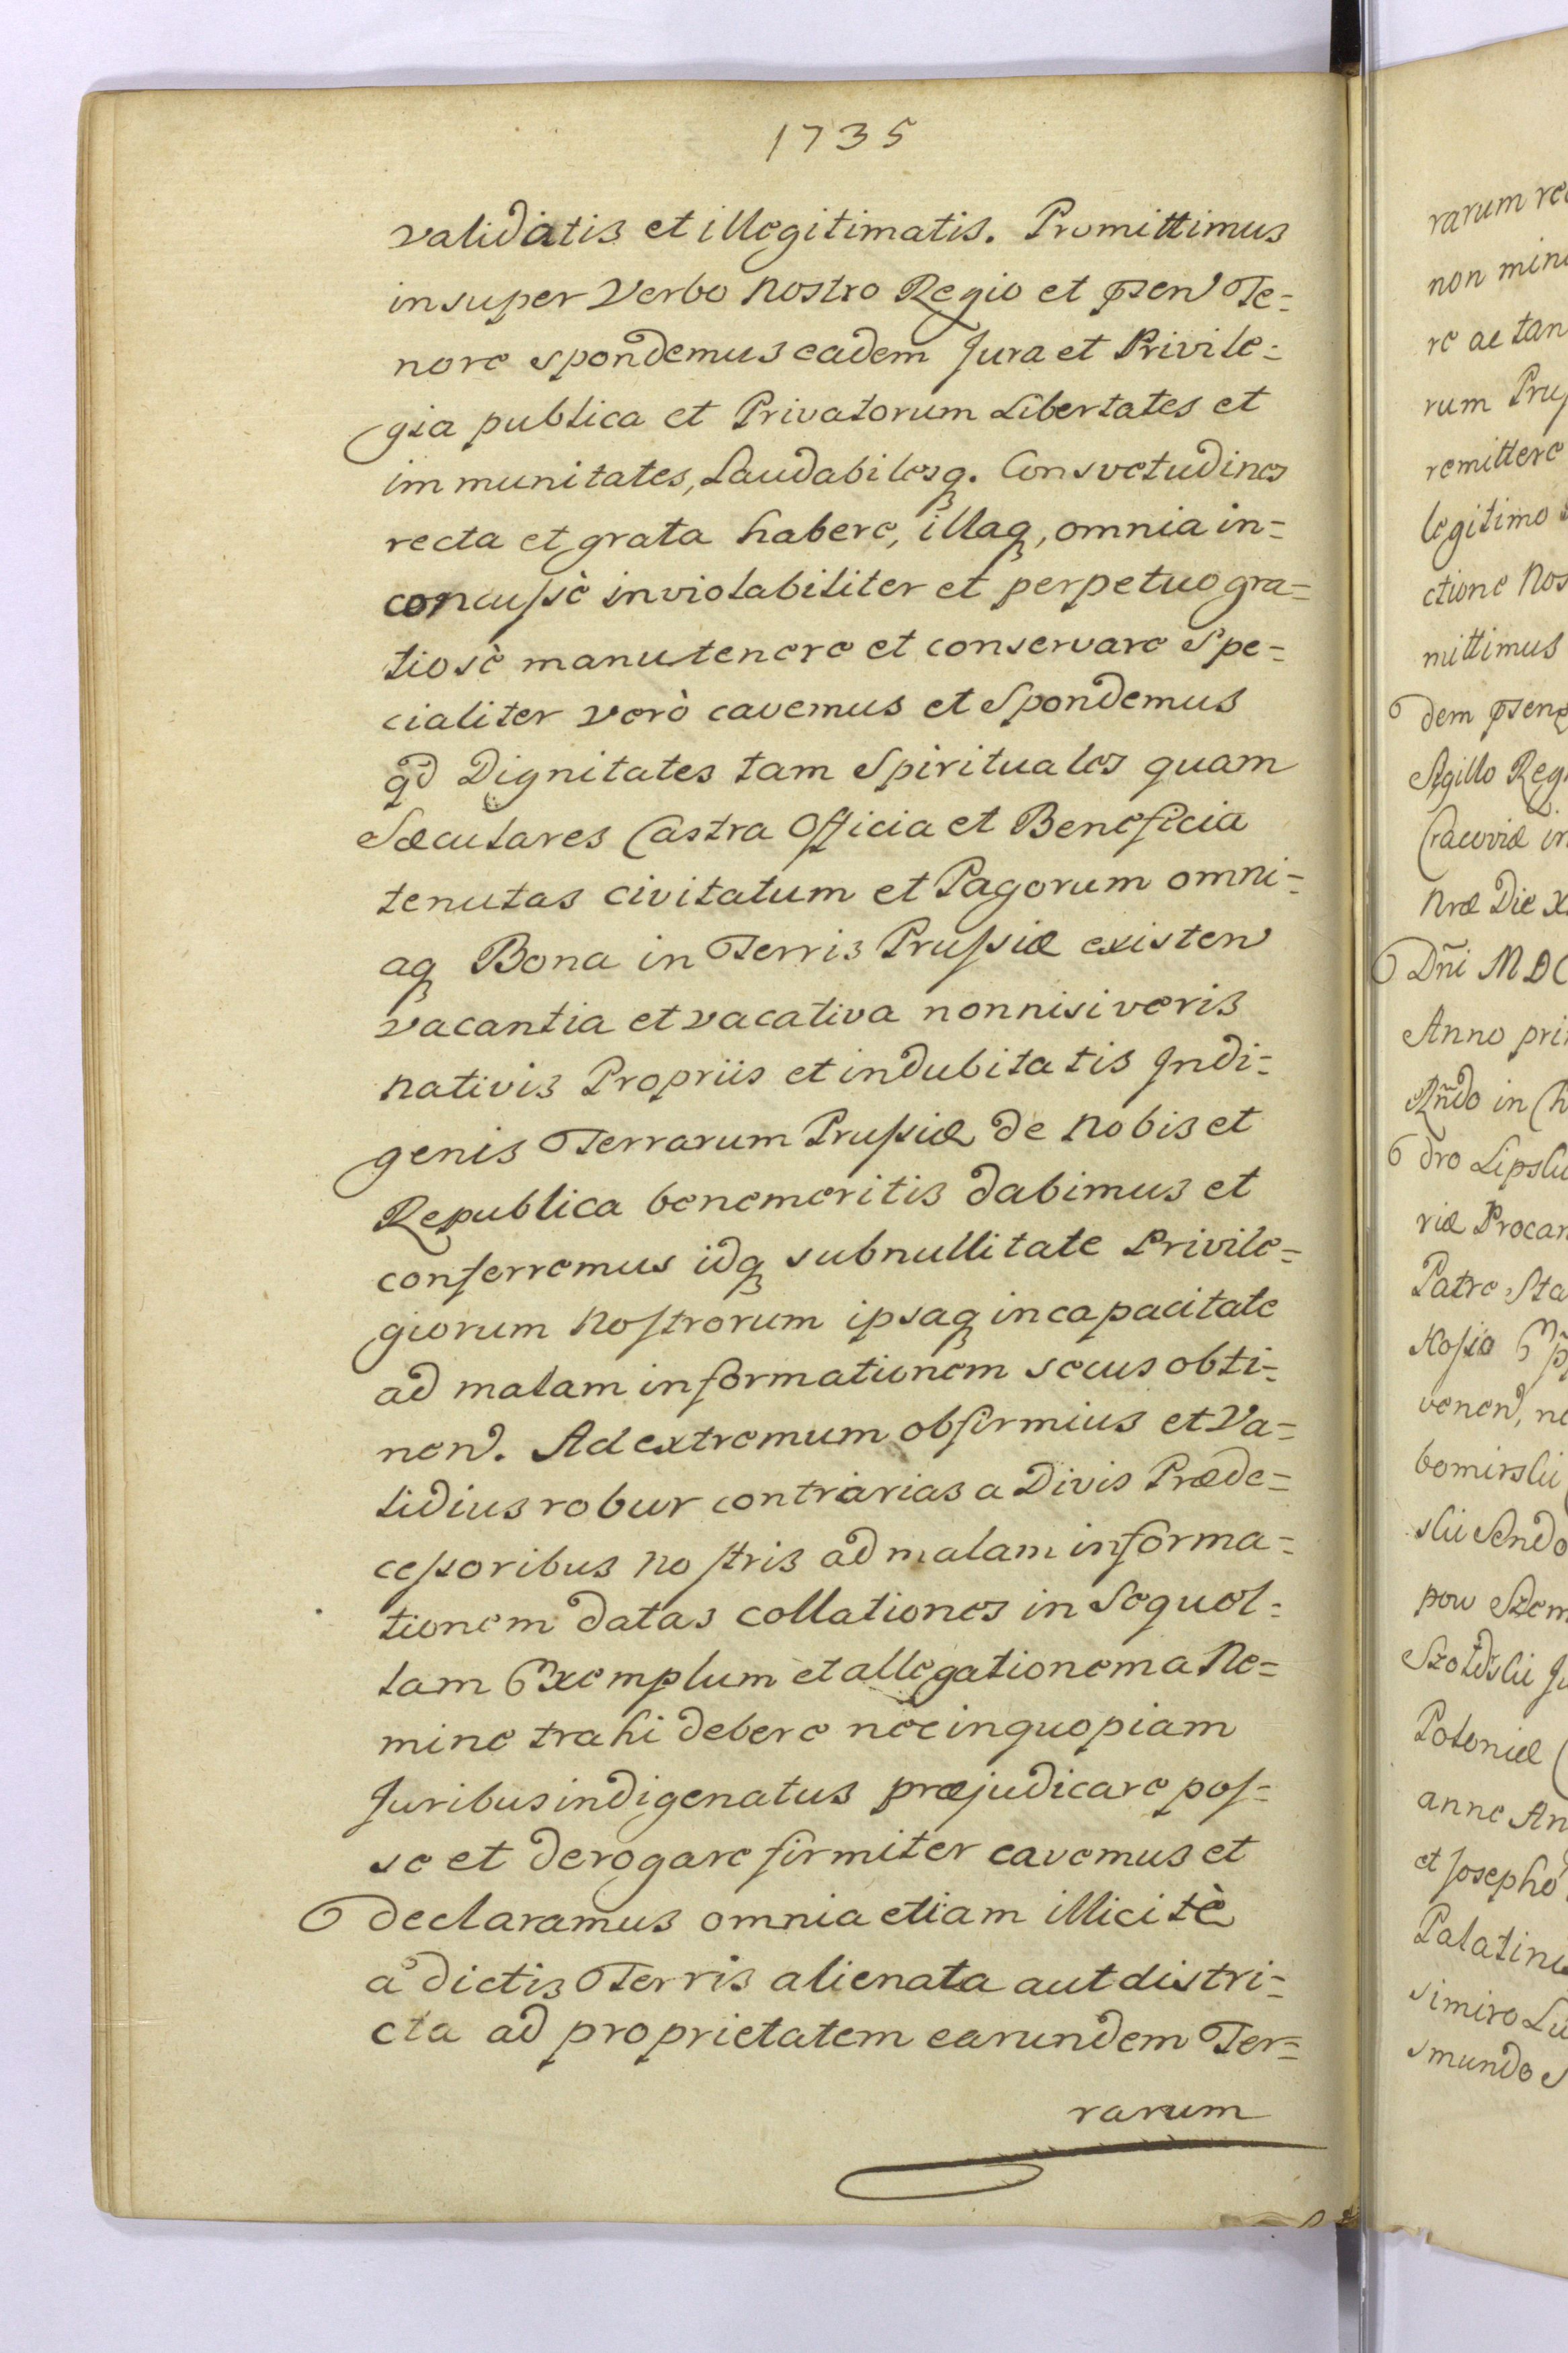 1735
validatis et illegitimatis. Promittimus
insuper Verbo Nostro Regio et pſen Te=
nore spondemus eadem Jura et Privile=
gia publica et Privatorum Libertates et
immunitates, Laudabilesq. Consvetudines
recta et grata habere, illaq, omnia in=
concuſsè inviolabiliter et perpetuo gra=
tiosè manutenere et conservare Spe=
cialiter verò cavemus et Spondemus
qd Dignitates tam Spirituales quam
Sæculares Castra Officia et Beneficia
tenutas civitatum et Pagorum omni=
aq Bona in Terris Pruſsiæ existen
vacantia et vacativa nonnisi veris
nativis Propriis et indubitatis Indi=
genis Terrarum Pruſsiæ de Nobis et
Republica benemeritis dabimus et
conferremus idq sub nullitate Privile=
giorum Noſtrorum ipsaq incapacitate
ad malam informationem secus obti=
nen. Ad extremum obfirmius et Va=
lidius robur contrarias a Divis Præde=
ceſsoribus Noſtris ad malam informa=
tionem datas collationes in Sequel=
lam Exemplum et allegationem a Ne=
mine trahi debere nec in quopiam
Juribus indigenatus præjudicare poſ=
se et derogare firmiter cavemus et
declaramus omnia etiam illicitè
a dictis Terris alienata aut distri=
cta ad proprietatem earundem Ter=
rarum
rarum
non min
re ac tan
rum Pruſ
remittere
legitimo
ctione Nos
mittimus
dem pſen
Sigillo Reg
Cracoviæ in
Nræ Die X
Dñi MDC
Anno pri
Rñdo in Ch
dro Lipsk
riæ Procan
Patre Sta
venen, ne
bomirski
ski Sendo
pow Szem
Poloniæ
anne An
et Josepho
Palatin
simiro Lu
smundo S